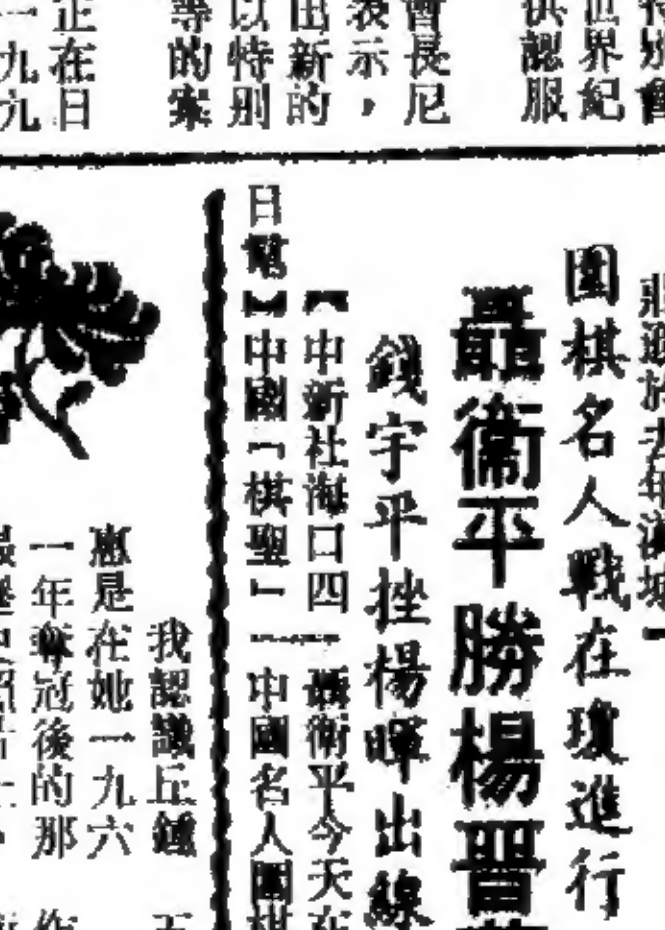 世界紀
供認服
會長尼
表示，
出新的
以特別
等的案
正在日
一九九
圍棋名人戰在瓊進行
聶衛平勝楊晋
錢宇平挫楊暉出線
【中新社海口四
日電】中國「棋聖」
聶衛平今天在
中國名人圍棋
我認識丘鍾
惠是在她一九六
一年奪冠後的那